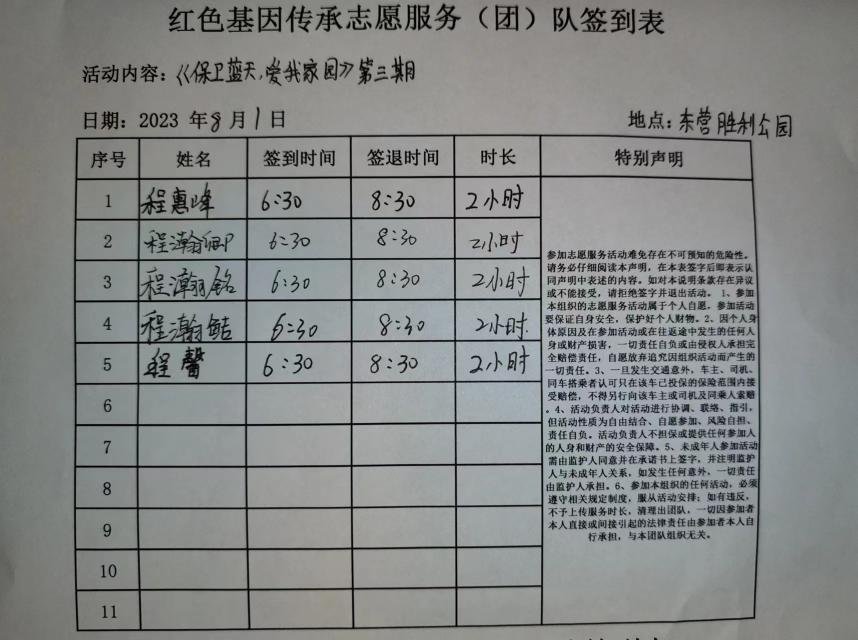 红色基因传承志愿服务（团）队签到表
活动内容：《保卫蓝天，爱我家园》第三期
日期：2023 年8月1日 地点：东营胜利公园
序号 姓名 签到时间 签退时间 时长 特别声明
1 程惠峰 6:30 8:30 2小时
2 程瀚卿 6:30 8:30 2小时
3 程瀚铭 6:30 8:30 2小时
4 程瀚 6:30 8:30 2小时.
5 程馨 6:30 8:30 2小时
6
7
8
9
10
11
参加志愿服务活动难免存在不可预知的危险性。
请务必仔细阅读本声明，在本表签字后即表示认
同声明中表述的内容。如对本说明条款存在异议
或不能接受，请拒绝签字并退出活动。 1、参加
本组织的志愿服务活动属于个人自愿，参加活动
要保证自身安全，保护好个人财物。2、因个人身
体原因及在参加活动或在往返途中发生的任何人
身或财产损害，一切责任自负或由侵权人承担完
全赔偿责任，自愿放弃追究因组织活动而产生的
一切责任。3、一旦发生交通意外，车主、司机、
同车搭乘者认可只在该车已投保的保险范围内接
受赔偿，不得另行向该车主或司机及同乘人索赔
。4、活动负责人对活动进行协调、联络、指引，
但活动性质为自由结合、自愿参加、风险自担、
责任自负。活动负责人不担保或提供任何参加人
的人身和财产的安全保障。5、未成年人参加活动
需由监护人同意并在承诺书上签字，并注明监护
人与未成年人关系，如发生任何意外，一切责任
由监护人承担。6、参加本组织的任何活动，必须
遵守相关规定制度，服从活动安排；如有违反，
不予上传服务时长，清理出团队，一切因参加者
本人直接或间接引起的法律责任由参加者本人自
行承担，与本团队组织无关。